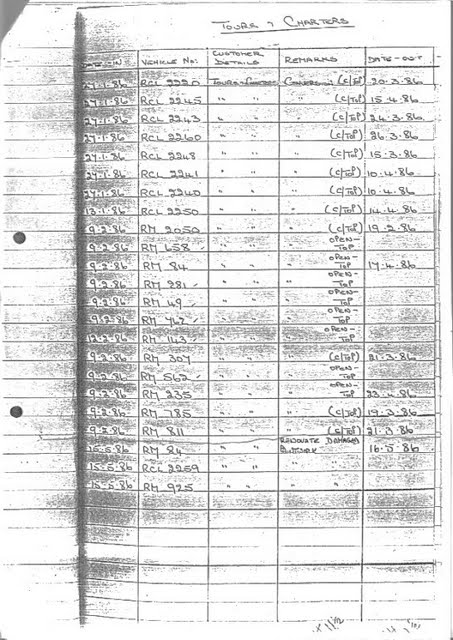 TOURS & CHARTERS
DATE-IN VEHICLE No: CUSTOMER DETAILS REMARKS DATE-OUT
27.1.86 RCL 2220 CONVERSION (C/TOP) 20.3.86
27.1.86 RCL 2245 " " " (C/TOP) 15.4.86
27.1.86 RCL 2243 " " " (C/TOP) 24.3.86
27.1.86 RCL 2260 " " " (C/TOP) 26.3.86
27.1.86 RCL 2248 " " " (C/TOP) 15.3.86
27.1.86 RCL 2241 " " " (C/TOP) 10.4.86
27.1.86 RCL 2240 " " " (C/TOP) 10.4.86
13.1.86 RCL 2250 " " " (C/TOP) 14.4.86
9.2.86 RM 2050 " " " (C/TOP) 19.2.86
9.2.86 RM 658 " " " OPEN-TOP
9.2.86 RM 84 " " " OPEN-TOP 17.4.86
9.2.86 RM 281 " " " OPEN-TOP
9.2.86 RM 49 " " " OPEN-TOP
9.2.86 RM 762 " " " OPEN-TOP
RM 143 " " " OPEN-TOP
9.2.86 RM 307 " " " (C/TOP) 21.3.86
9.2.86 RM 562 " " " OPEN-TOP
9.2.86 RM 235 " " " OPEN-TOP 23.4.86
9.2.86 RM 785 " " " (C/TOP) 19.3.86
9.2.86 RM 811 " " " (C/TOP) 21.3.86
15.5.86 RM 84 " " RENOVATE DAMAGED 16.5.86
15.5.86 RCL 2259 " " " "
15.5.86 RM 925 " " " "